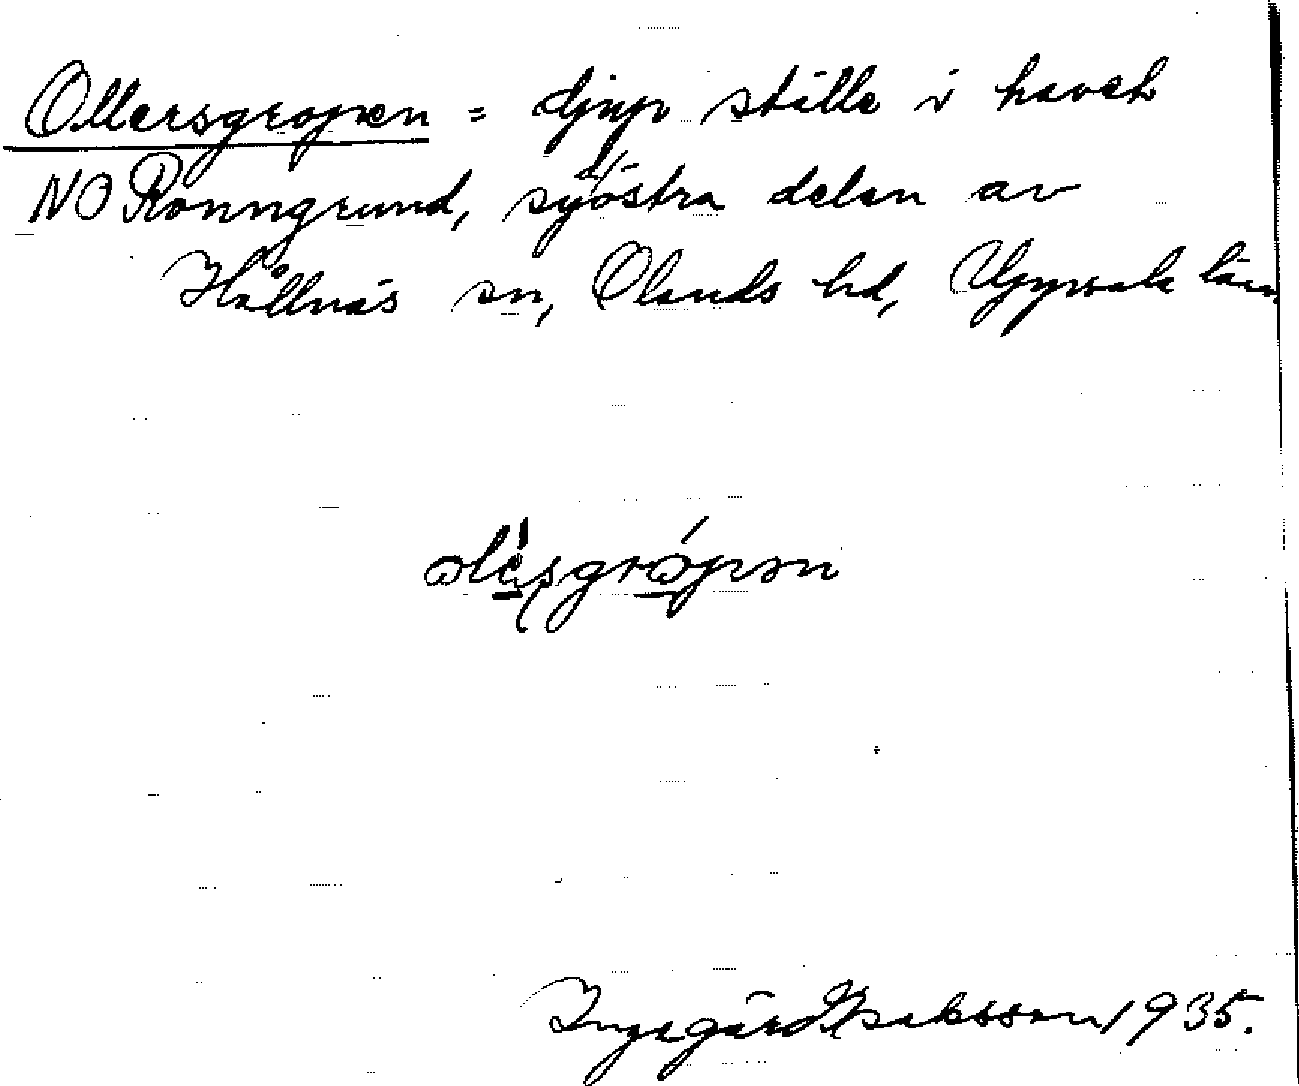 Ollersgropen = djup ställe i havet
NO Rönngrund, sydöstra delen av
Hållnäs sn, Olands hd, Uppsala län
Ingegärd Isaksson 1935.